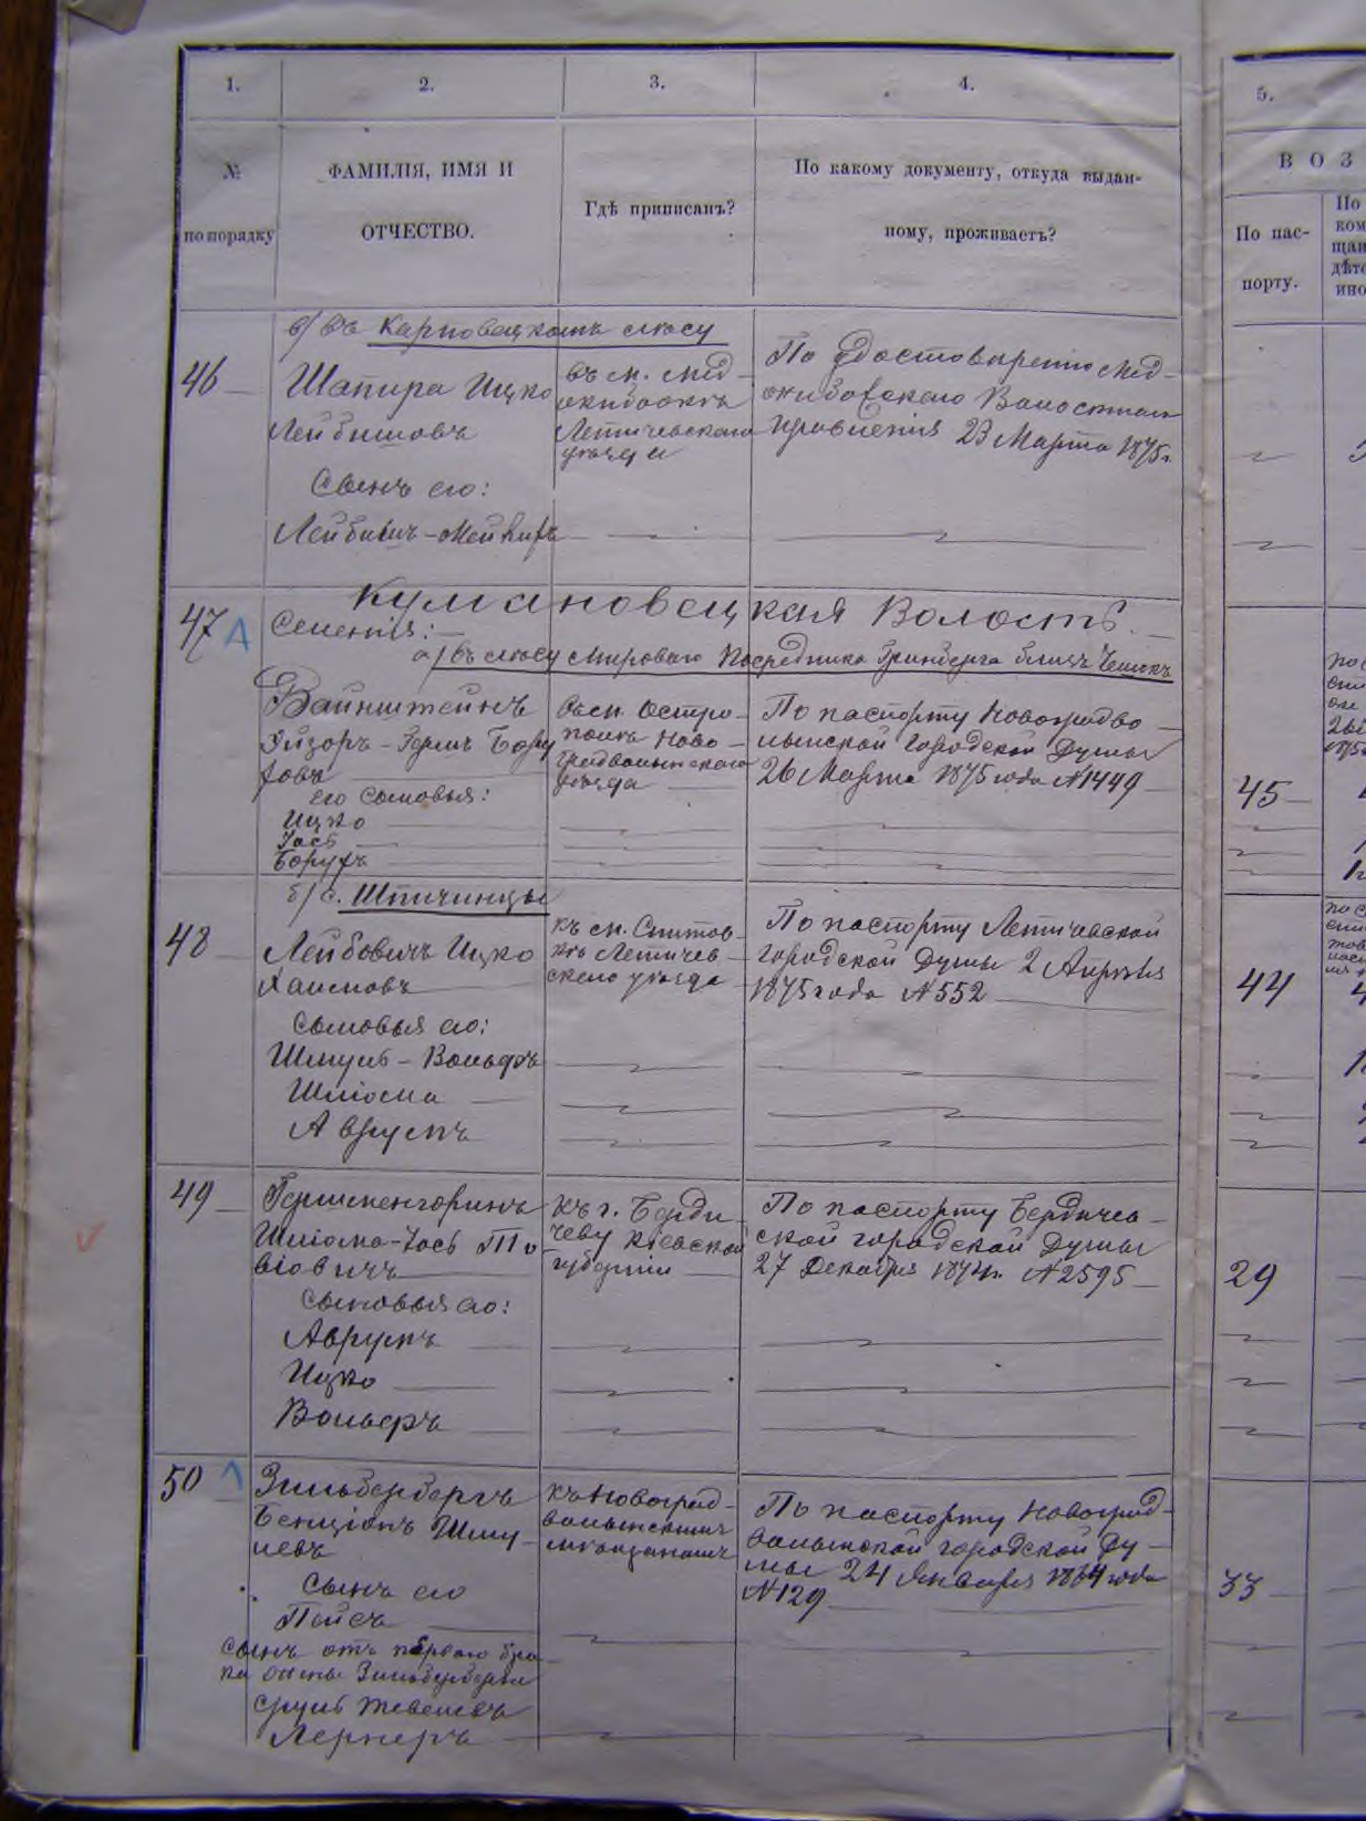 1.
2.
3.
4.
5.
№
по порядку
ФАМИЛІЯ, ИМЯ И
ОТЧЕСТВО.
Гдѣ приписанъ?
По какому документу, откуда выдан-
ному, проживаетъ?
В О З
По пас-
порту.
По
ком
щан
дѣте
ино
в/ въ Карповецкомъ лѣсу
46
Шапира Ицко
Лейбишовъ
въ м. Мед-
жибожъ
Летичевскаго
уѣзда
По удостовѣренію Мед-
жибожскаго Волостнаго
правленія 23 Марта 1875 г.
Сынъ его:
Лейбишъ-Мейлихъ
Кумановецкая Волость.
47
Селенія:
а) въ лѣсу Мироваго Посредника Гринберга близъ
Вайнштейнъ
Эйзоръ-Герш Бору
ховъ
Къ м. Остро-
полю Ново-
градволынскаго
уѣзда
По паспорту Новоградво-
лынской городской Думы
26 Марта 1875 года №1449
45
его сыновья:
Ицко
Іось
Борухъ
б/ с. Шпичинцы
48
Лейбовичъ Ицко
Хаимовъ
къ м.
Летичев-
скаго уѣзда
По паспорту Летичевской
городской Думы 2 Апрѣля
1875 года №552
44
Сыновья его:
Шмуль-Вольфъ
Шліома
Аврумъ
49
Шліома-Іось То
віовичъ
къ г. Берди
чеву Кіевской
губерніи
По паспорту Бердичев-
ской городской Думы
27 Декабря 1874 г. №2595
29
Сыновья его:
Аврумъ
Ицко
Вольфъ
50
Зильбербергъ
Бенціонъ Шму-
левъ
къ Новоград-
волынскимъ
мѣщанамъ
По паспорту Новоград-
волынской городской Ду-
мы 24 Января года
№129
33
Сынъ его
Пейсъ
Сынъ отъ перваго бра-
ка жены Зильберберга
Сруль
Лернеръ